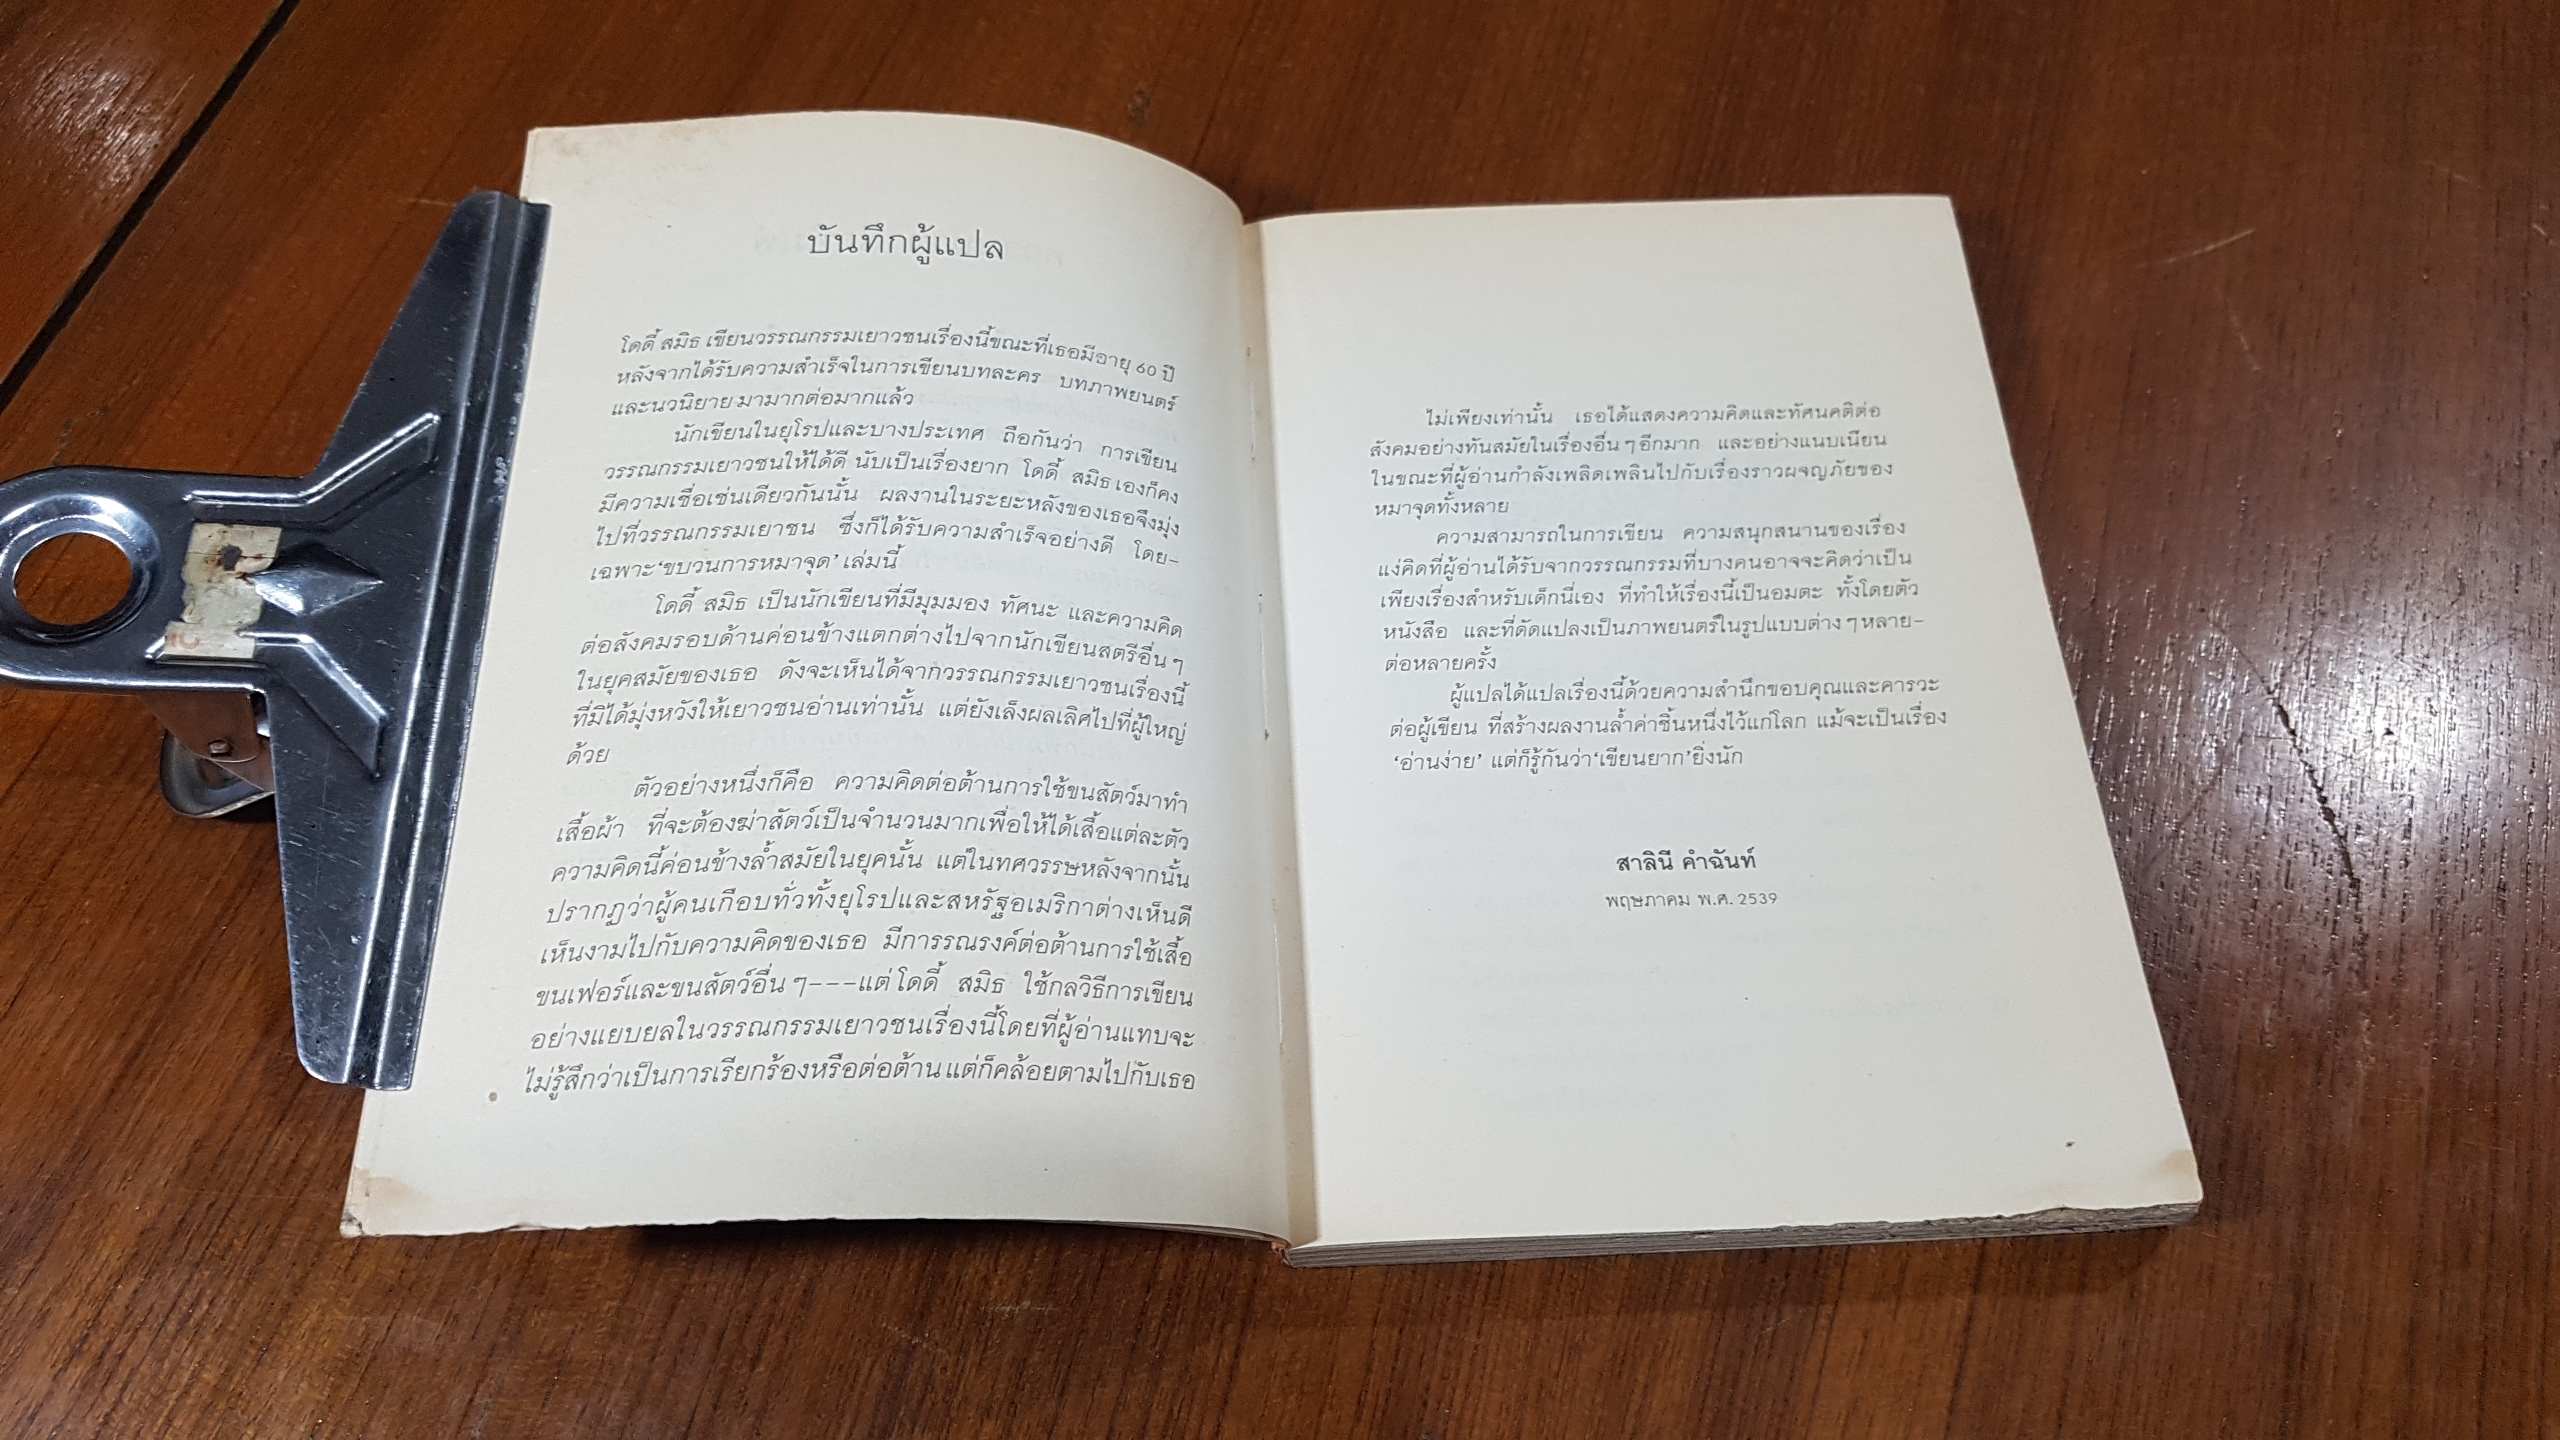 บันทึกผู้แปล
โดดี้ สมิธ เขียนวรรณกรรมเยาวชนเรื่องนี้ขณะที่เธอมีอายุ 60 ปี
หลังจากได้รับความสำเร็จในการเขียนบทละคร บทภาพยนตร์
และนวนิยายมามากต่อมากแล้ว
นักเขียนในยุโรปและบางประเทศ ถือกันว่า การเขียน
วรรณกรรมเยาวชนให้ได้ดี นับเป็นเรื่องยาก โดดี้ สมิธ เองก็คง
มีความเชื่อเช่นเดียวกันนั้น ผลงานในระยะหลังของเธอจึงมุ่ง
ไปที่วรรณกรรมเยาชน ซึ่งก็ได้รับความสำเร็จอย่างดี โดย-
เฉพาะ‘ขบวนการหมาจุด’ เล่มนี้
โดดี้ สมิธ เป็นนักเขียนที่มีมุมมอง ทัศนะ และความคิด
ต่อสังคมรอบด้านค่อนข้างแตกต่างไปจากนักเขียนสตรีอื่น ๆ
ในยุคสมัยของเธอ ดังจะเห็นได้จากวรรณกรรมเยาวชนเรื่องนี้
ที่มิได้มุ่งหวังให้เยาวชนอ่านเท่านั้น แต่ยังเล็งผลเลิศไปที่ผู้ใหญ่
ด้วย
ตัวอย่างหนึ่งก็คือ ความคิดต่อต้านการใช้ขนสัตว์มาทำ
เสื้อผ้า ที่จะต้องฆ่าสัตว์เป็นจำนวนมากเพื่อให้ได้เสื้อแต่ละตัว
ความคิดนี้ค่อนข้างล้ำสมัยในยุคนั้น แต่ในทศวรรษหลังจากนั้น
ปรากฏว่าผู้คนเกือบทั่วทั้งยุโรปและสหรัฐอเมริกาต่างเห็นดี
เห็นงามไปกับความคิดของเธอ มีการรณรงค์ต่อต้านการใช้เสื้อ
ขนเฟอร์และขนสัตว์อื่น ๆ---แต่ โดดี้ สมิธ ใช้กลวิธีการเขียน
อย่างแยบยลในวรรณกรรมเยาวชนเรื่องนี้โดยที่ผู้อ่านแทบจะ
ไม่รู้สึกว่าเป็นการเรียกร้องหรือต่อต้าน แต่ก็คล้อยตามไปกับเธอ
ไม่เพียงเท่านั้น เธอได้แสดงความคิดและทัศนคติต่อ
สังคมอย่างทันสมัยในเรื่องอื่น ๆ อีกมาก และอย่างแนบเนียน
ในขณะที่ผู้อ่านกำลังเพลิดเพลินไปกับเรื่องราวผจญภัยของ
หมาจุดทั้งหลาย
ความสามารถในการเขียน ความสนุกสนานของเรื่อง
แง่คิดที่ผู้อ่านได้รับจากวรรณกรรมที่บางคนอาจจะคิดว่าเป็น
เพียงเรื่องสำหรับเด็กนี่เอง ที่ทำให้เรื่องนี้เป็นอมตะ ทั้งโดยตัว
หนังสือ และที่ดัดแปลงเป็นภาพยนตร์ในรูปแบบต่าง ๆ หลาย-
ต่อหลายครั้ง
ผู้แปลได้แปลเรื่องนี้ด้วยความสำนึกขอบคุณและคารวะ
ต่อผู้เขียน ที่สร้างผลงานล้ำค่าชิ้นหนึ่งไว้แก่โลก แม้จะเป็นเรื่อง
‘อ่านง่าย’ แต่ก็รู้กันว่า‘เขียนยาก’ยิ่งนัก
สาลินี คำฉันท์
พฤษภาคม พ.ศ. 2539